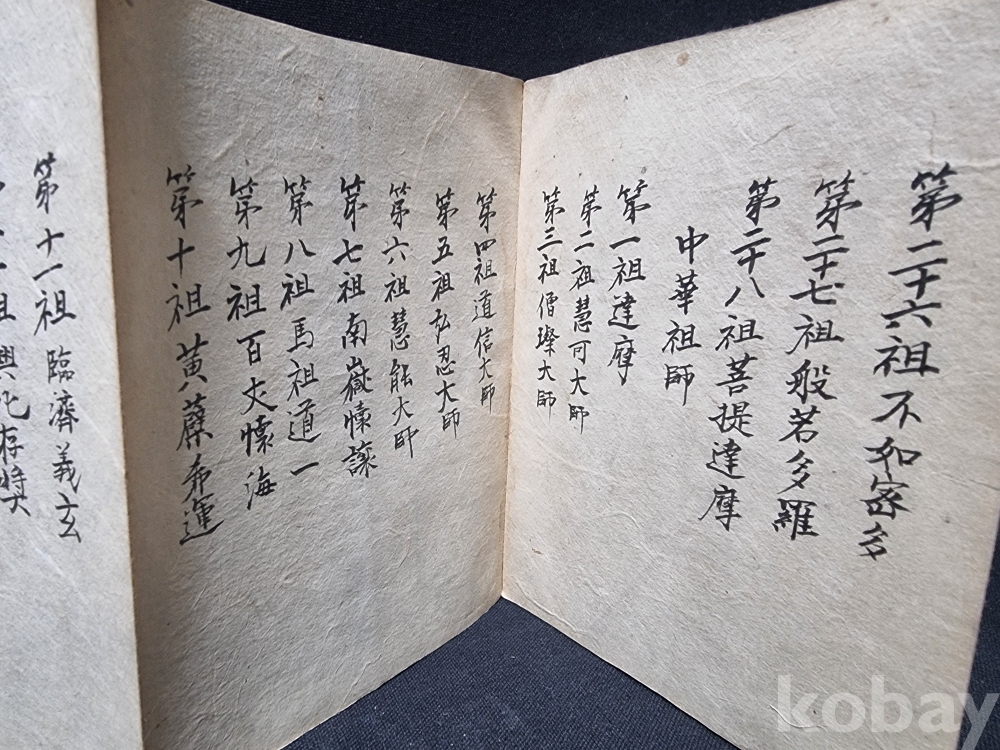 第二十六祖不如密多
第二十七祖般若多羅
第二十八祖菩提達摩
中華祖師
第一祖達摩
第二祖慧可大師
第三祖僧璨大師
第四祖道信大師
第五祖弘忍大師
第六祖慧能大師
第七祖南嶽懐讓
第八祖馬祖道一
第九祖百丈懐海
第十祖黃蘗希運
第十一祖臨濟義玄
祖興化存奬
kobay